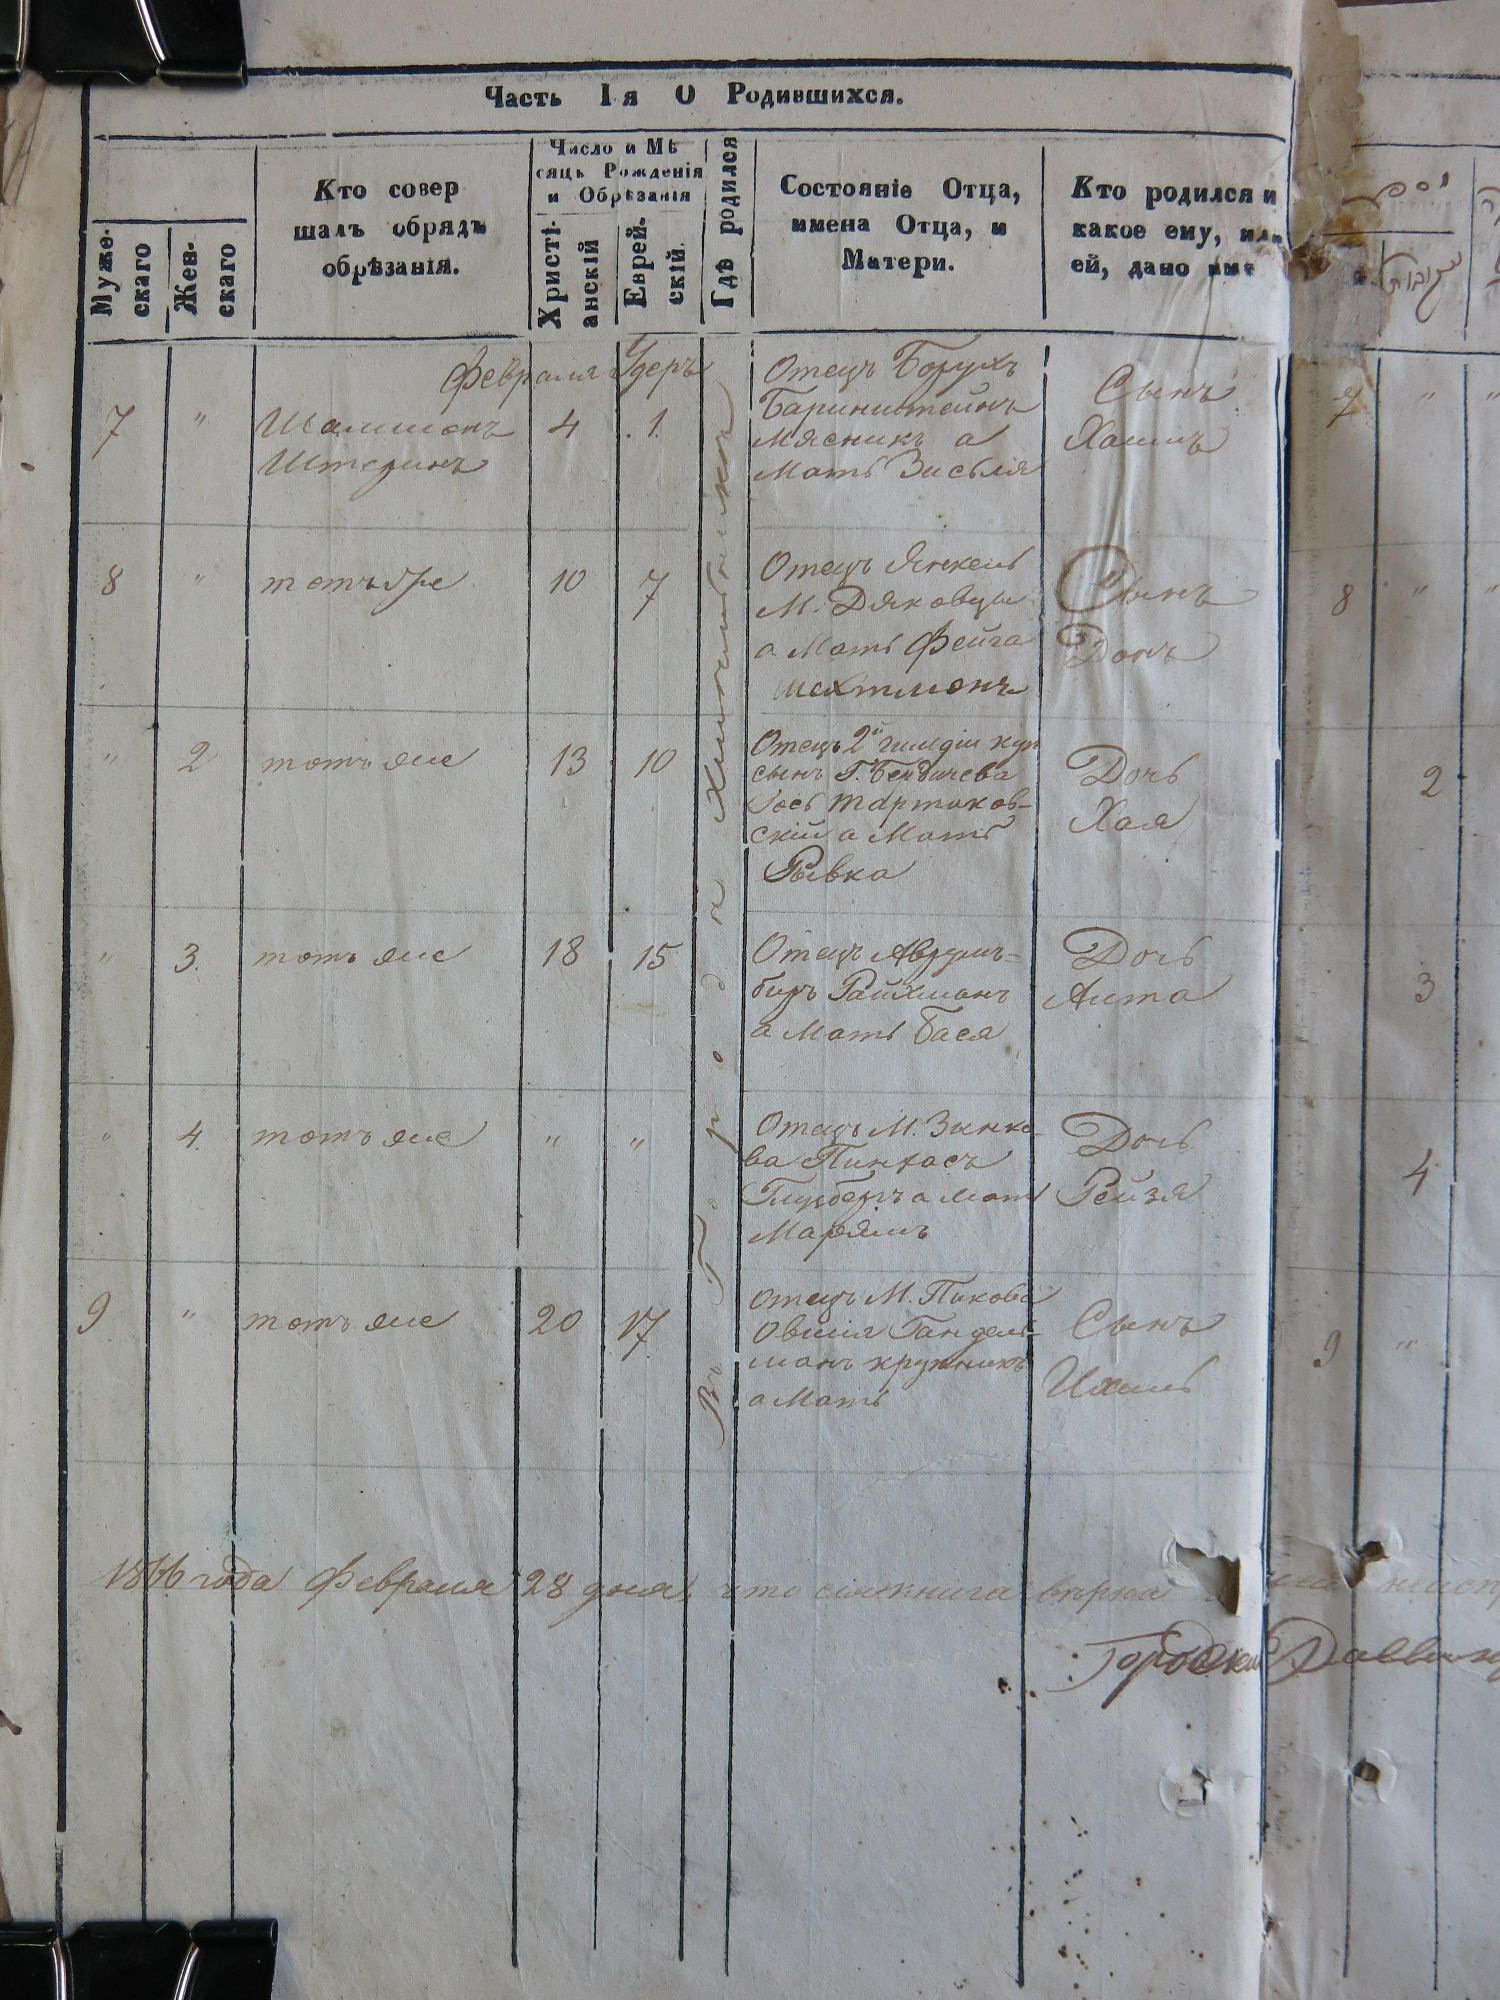 Часть Iя О Родившихся.
Муже-
скаго
Жен-
скаго
Кто совер
шалъ обрядъ
обрѣзанія.
Число и Мѣ
сяцъ Рожденія
и Обрѣзанія
Христі-
анскій
Еврей-
скій
Гдѣ родился
Состояніе Отца,
имена Отца, и
Матери.
Кто родился и
какое ему, или
ей, дано имя
Февраля Адеръ
7 " Шалимонъ
Штеринъ
4 1.
Отецъ Борухъ
Баринштейнъ
Мясникъ а
Мать Зисьля
Сынъ
Хаимъ
8 " тотъ же 10 7
Отецъ Янкель
М. Дяковцы
а Мать Фейга
Шехтманъ
Сынъ
" 2 тотъ же 13 10
Отецъ 2й гильдіи куп
сынъ Г. Бердичева
Іось Мартиков-
скій а Мать
Рывка
Дочь
Хая
" 3. тотъ же 18 15
Отецъ Аврумъ-
беръ Райхманъ
а Мать Бася
Дочь
Алта
" 4. тотъ же " "
Отецъ М. Зинко-
ва Пинхасъ
а мать
Марямъ
Дочь
Рейзя
9 " тотъ же 20 17
Отецъ М. Пикова
Овшія Гандель-
манъ крупникъ
а Мать
Сынъ
Ихиль
Въ Городѣ
1866 года Февраля 28 дня, что сія книга вѣрна
Городской Раввинъ
7 " "
8 " "
2
3
4
9 "